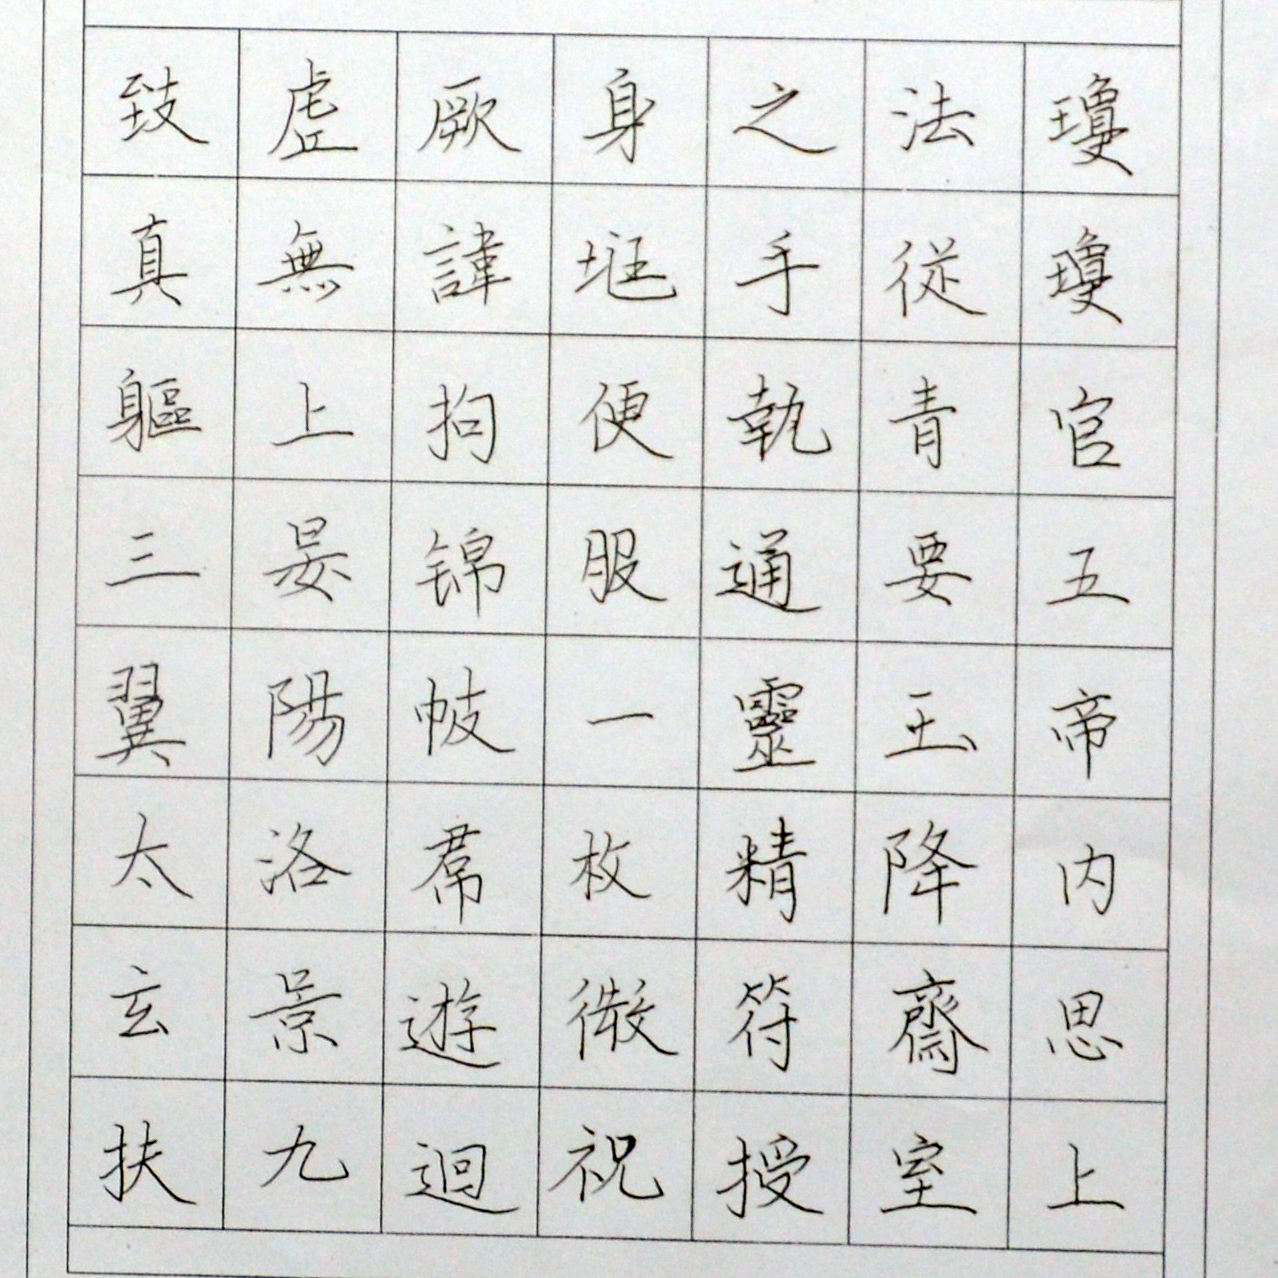 瓊瓊官五帝内思上
法從青要玉降齋室
之手執通靈精符授
身便服一枚微祝
厥諱拘锦帔君遊迴
虚無上晏陽洛景九
致真軀三翼太玄扶